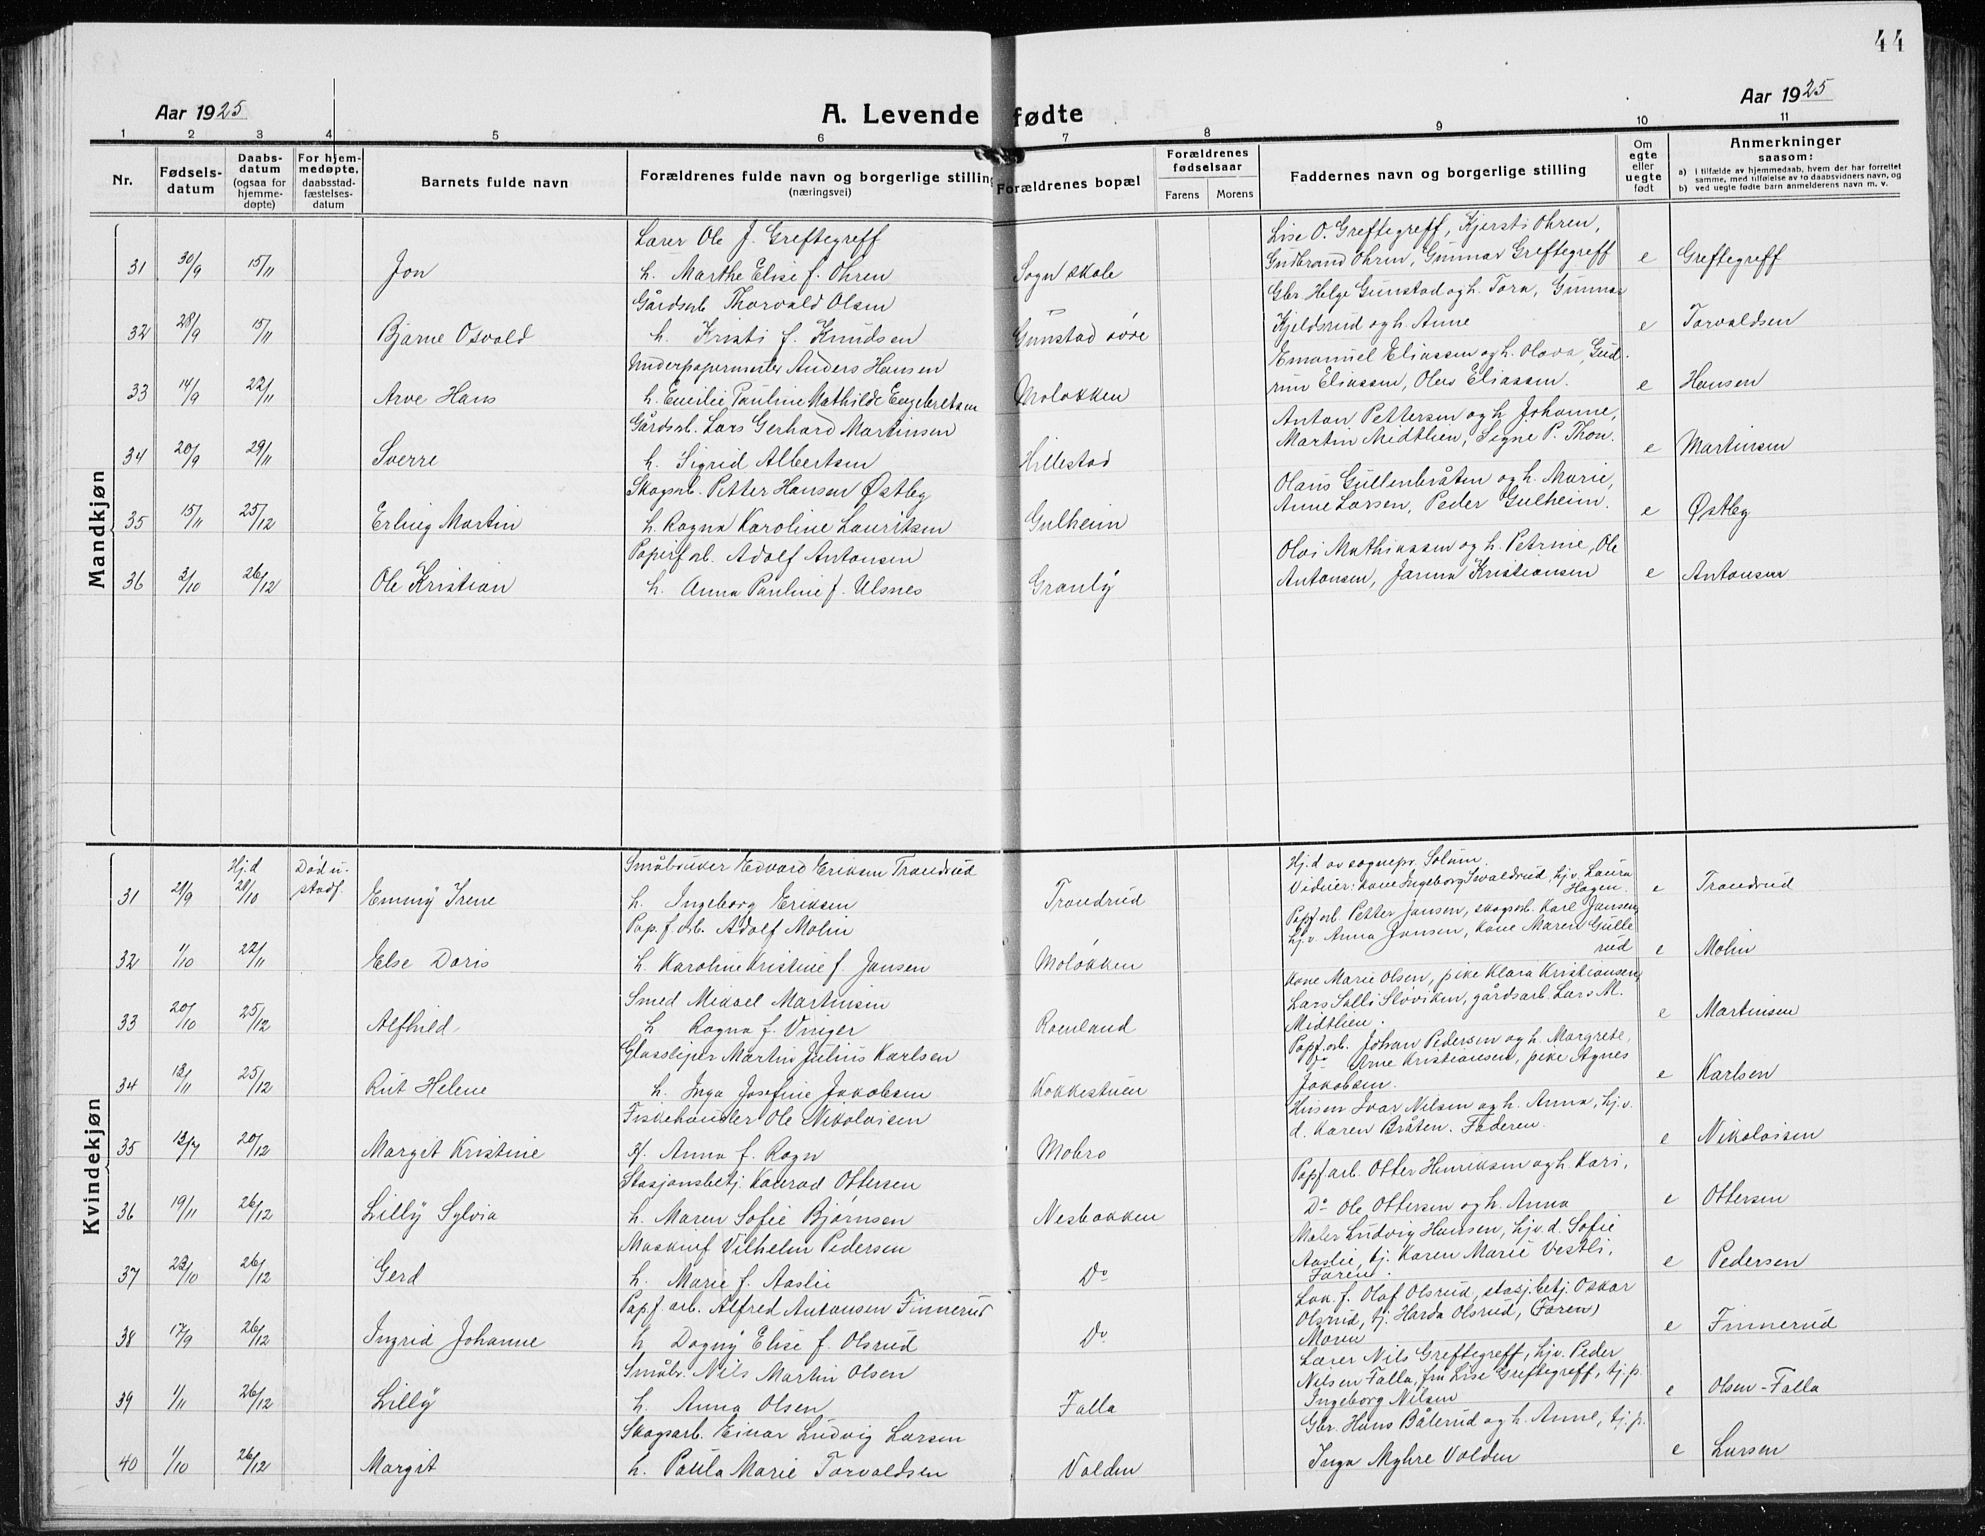 44
Aar 1925
A. Levende fødte
Aar 1925
1 2 3 4 5 6 7 8 9 10 11
Nr.
Fødsels-
datum
Daabs-
datum
(ogsaa for
hjemme-
døpte)
For hjem-
medøpte.
daabsstad-
fæstelses-
datum
Barnets fulde navn
Forældrenes fulde navn og borgerlige stilling
(næringsvei)
Forældrenes bopæl
Forældrenes
fødselsaar
Farens Morens
Faddernes navn og borgerlige stilling
Om
egte
eller
uegte
født
Anmerkninger
saasom:
a) i tilfælde av hjemmedaab, hvem der har forrettet
samme, med tilføielse av to daabsvidners navn, og
b) ved uegte fødte barn anmelderens navn m. v.
Mandkjøn
Lærer Ole J. Greftegreff Lise O. Greftegreff, Kjersti Ohren,
31 30/9 15/11 Jon h. Marthe Elise f. Ohren Sogn skole Gudbrand Ohren, Gunnar Greftegreff e Greftegreff
Gårdsarb. Thorvald Olsen Gbr Helge Gunstad og h. Tora, Gunnar
32 28/9 15/11 Bjarne Osvald h. Kristi f. Knudsen Gunstad øvre Kjeldsrud og h. Anne e Torvaldsen
Underpapermester Anders Hansen Emanuel Eliassen og h. Olava, Gud-
33 14/9 22/11 Arve Hans h. Emilie Pauline Mathilde Engebretsen Moløkken run Eliassen, Olav Eliassen. e Hansen
Gårdsarb. Lars Gerhard Martinsen Anton Pettersen og h. Johanne,
34 20/9 29/11 Sverre h. Sigrid Albertsen Hillestad Martin Midtlien, Signe P. Thon. e Martinsen
Skogsarb. Petter Hansen Østby Olaus Gullenbråten og h. Marie,
35 15/11 25/12 Erling Martin h. Ragna Karoline Lauritsen Gulheim Anne Larsen, Peder Gulheim. e Østby
Papirf.arb. Adolf Antonsen Olai Mathiassen og h. Petrine, Ole
36 3/10 26/12 Ole Kristian h. Anna Pauline f. Ulsnes Granly Antonsen, Janna Kristiansen e Antonsen
Kvindekjøn
Hj.d Død u. Småbruker Edvard Eriksen Trandrud Hj.d av sognepr. Solum.
31 21/9 21/10 stadf. Emmy Irene h. Ingeborg Eriksen Trandrud Vidner: kone Ingeborg Svaldrud, hj.v. Laura Hagen. e Trandrud
Pap.f.arb. Adolf Molin Papf.arb. Petter Jansen, skogsarb. Karl Jansen,
32 1/10 22/11 Else Doris h. Karoline Kristine f. Jansen Moløkken hj.v. Anna Jansen, kone Maren Gulle rud e Molin
Smed Mikael Martinsen Kone Marie Olsen, pike Klara Kristiansen,
33 20/10 25/12 Alfhild h. Ragna f. Viniger Roenland Lars Salli Sløviken, gårdsarb. Lars M. Midtlien. e Martinsen
Glassliper Martin Julius Karlsen Papf.arb. Johan Pedersen og h. Margrete,
34 13/11 25/12 Rut Helene h. Inga Josefine Jakobsen Kokkestuen Do Arne Kristiansen, pike Agnes Jakobsen. e Karlsen
Fiskehandler Ole Nikolaisen Ivar Nilsen og h. Anna, hj.v.
35 13/7 20/12 Margit Kristine H. Anna f. Rogn Mobro d. Karen Bråten. Faderen. e Nikolaisen
Stasjonsbetj. Konrad Ottersen Papf arb. Otter Henriksen og h. Kari,
36 19/11 26/12 Lilly Sylvia h. Maren Sofie Bjørnsen Nesbakken Do Ole Ottersen og h. Anna e Ottersen
Maskinf Vilhelm Pedersen Maler Ludvig Hansen, hjv.d. Sofie
37 23/10 26/12 Gerd h. Marie f. Aaslie Do Aaslie, tj. Karen Marie Vestli, Faren. e Pedersen
Papf arb. Alfred Antonsen Finnerud Lok.f. Olaf Olsrud, stasj.betj. Oskar
38 17/9 26/12 Ingrid Johanne h. Dagny Elise f. Olsrud Do Olsrud, tj. Harda Olsrud, (Faren) Moren e Finnerud
Småbr. Nils Martin Olsen Lærer Nils Greftegreff, hjv. Peder
39 1/11 26/12 Lilly h. Anna Olsen Falla Nilsen Falla, fru Lise Greftegreff, tj.p. Ingeborg Nilsen e Olsen-Falla
Skogsarb. Einar Ludvig Larsen Gbr. Hans Bålerud og h. Anne, tj.p.
40 1/10 26/12 Margit h. Paula Marie Torvaldsen Volden Inga Myhre Volden e Larsen